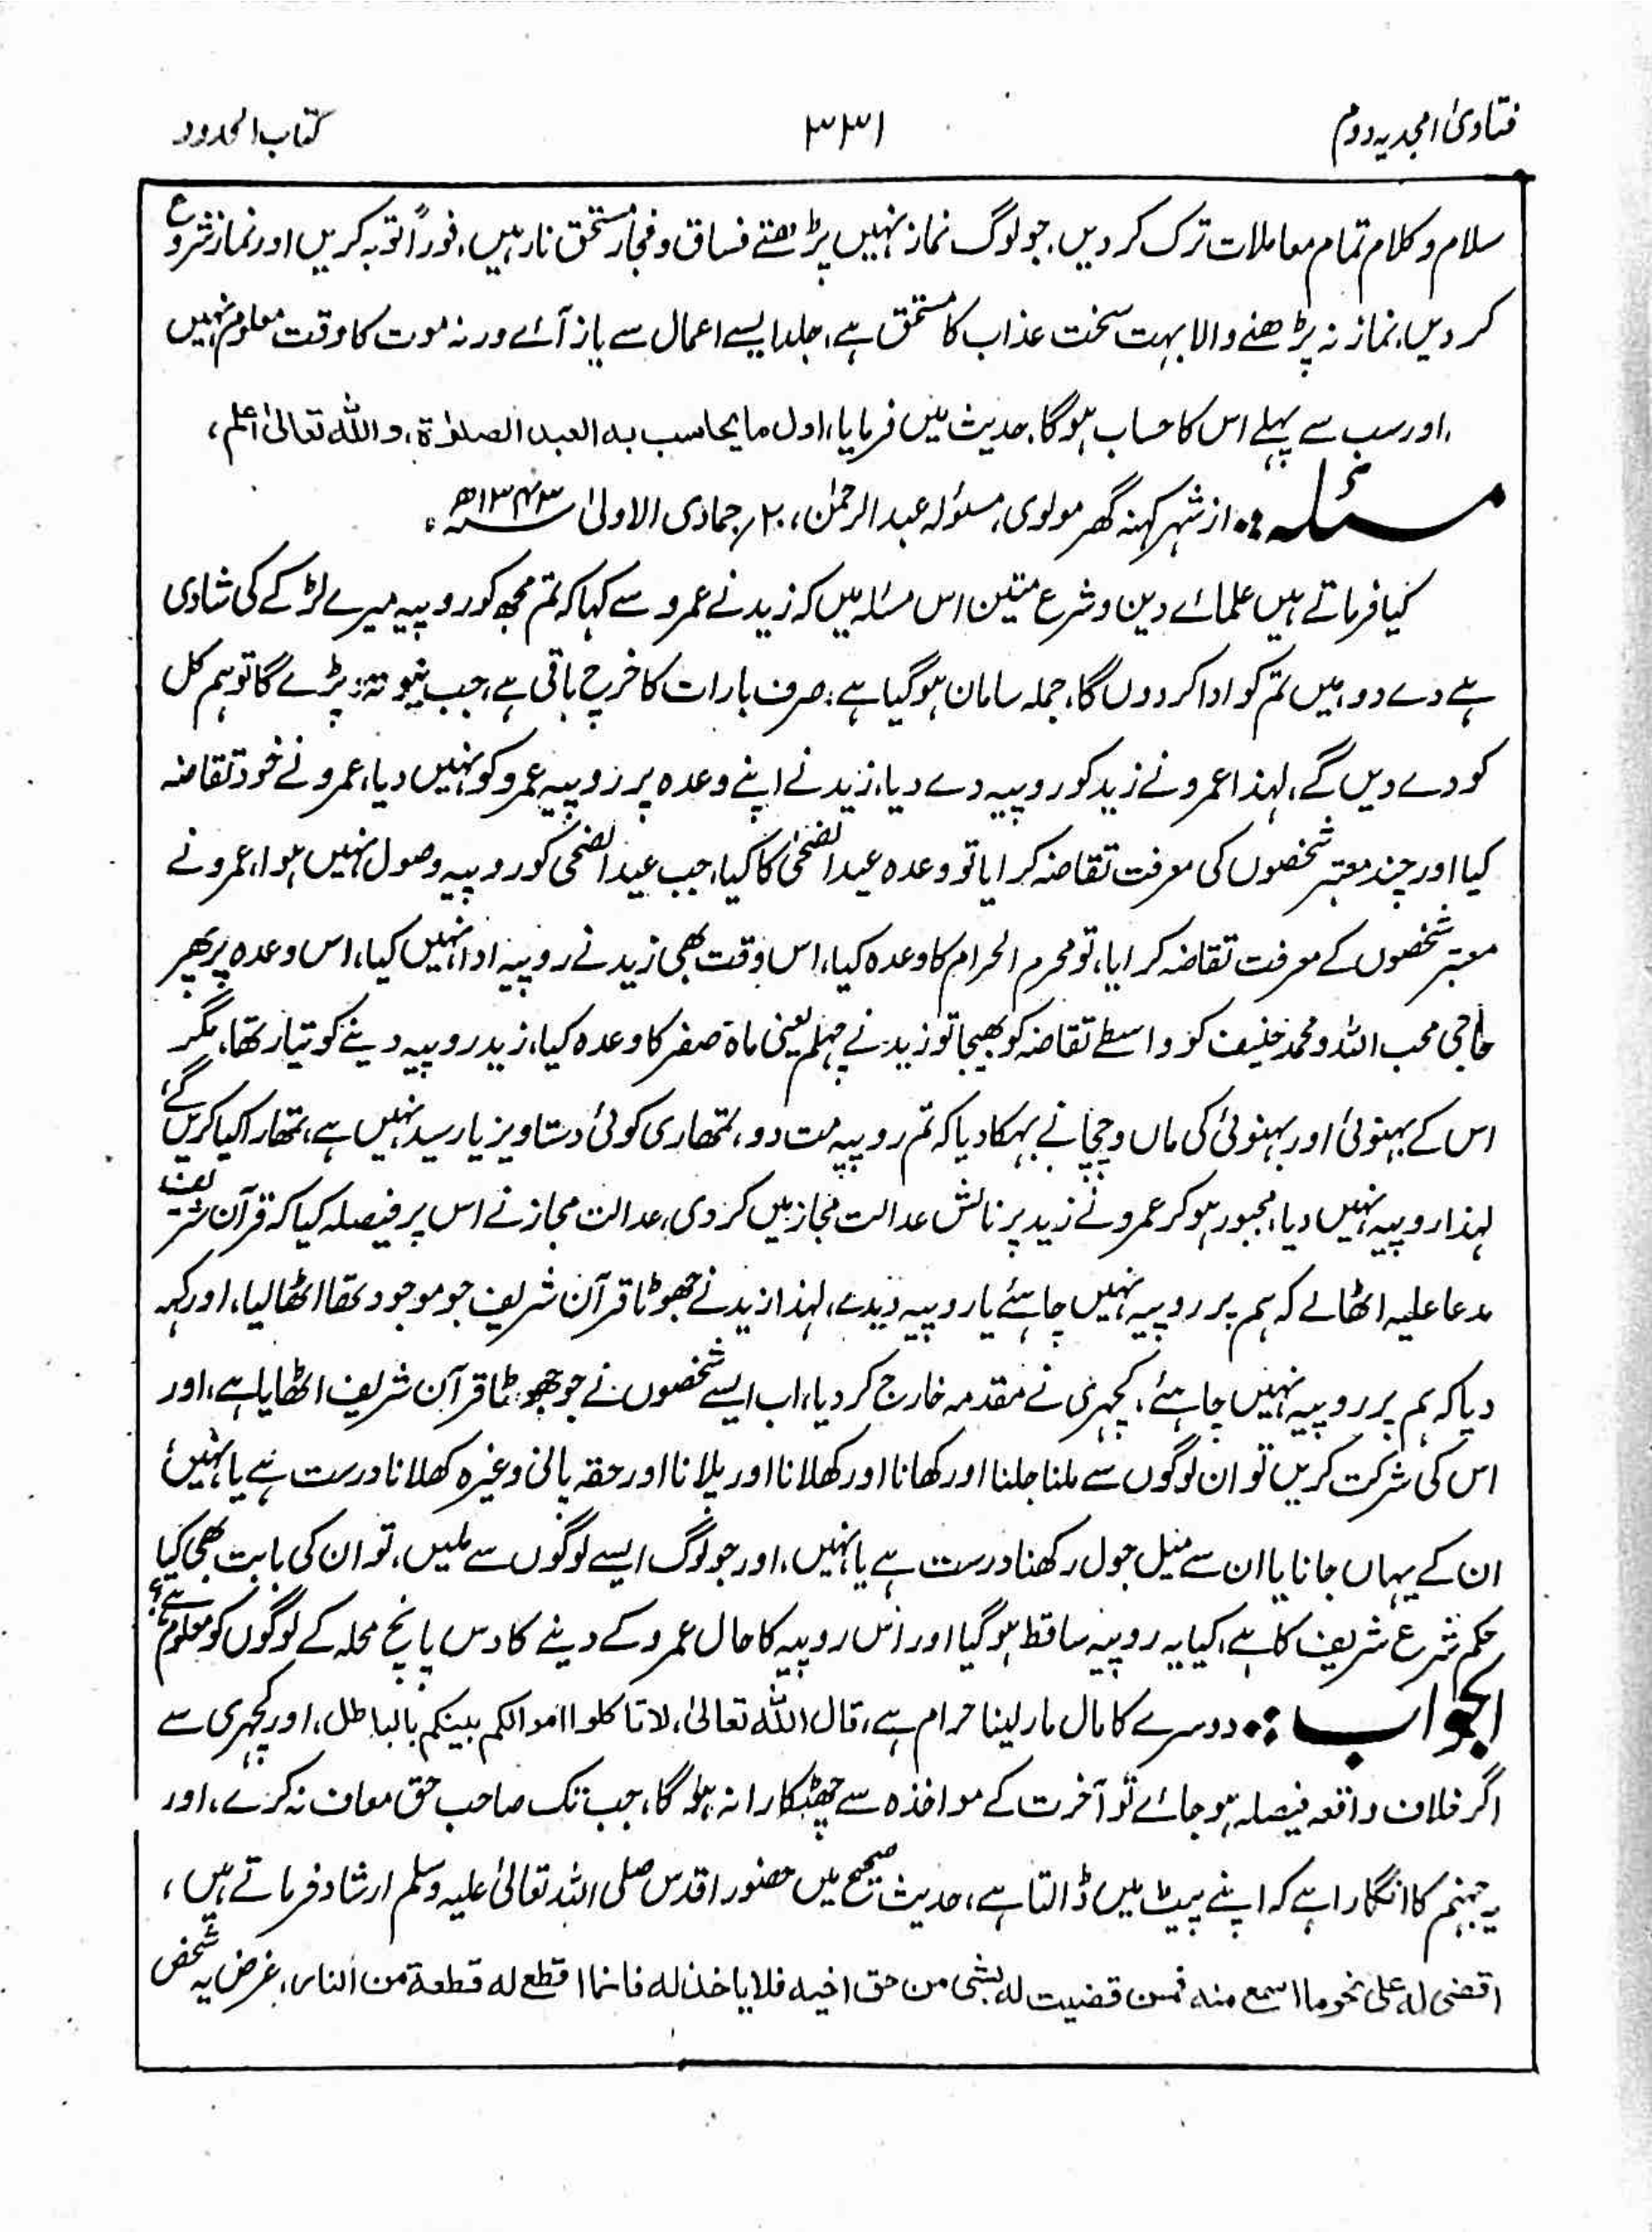 فتاویٰ امجدیہ دوم ۳۳۱ کتاب الحدود
سلام و کلام تمام معاملات ترک کر دیں، جو لوگ نماز نہیں پڑھتے فساق و فجار مستحق نار ہیں، فوراً توبہ کریں اور نماز شروع
کر دیں، نماز نہ پڑھنے والا بہت سخت عذاب کا مستحق ہے، جلد ایسے اعمال سے باز آئے ورنہ موت کا وقت معلوم نہیں
، اور سب سے پہلے اس کا حساب ہوگا، حدیث میں فرمایا، اول ما یحاسب بہ العبد الصلوٰۃ، واللہ تعالیٰ اعلم،
مسئلہ :۔ از شہر کہنہ گھر مولوی، مسئولہ عبد الرحمٰن، ۲۰؍ جمادی الاولیٰ ۱۳۴۳ھ ۔
کیا فرماتے ہیں علمائے دین و شرع متین اس مسئلہ میں کہ زید نے عمرو سے کہا کہ تم مجھ کو روپیہ میرے لڑکے کی شادی
ہے دے دو، میں تم کو ادا کر دوں گا، جملہ سامان ہو گیا ہے، صرف بارات کا خرچ باقی ہے، جب نیوتہ پڑے گا تو ہم کل
کو دے دیں گے، لہذا عمرو نے زید کو روپیہ دے دیا، زید نے اپنے وعدہ پر روپیہ عمرو کو نہیں دیا، عمرو نے خود تقاضہ
کیا اور چند معتبر شخصوں کی معرفت تقاضہ کرایا تو وعدہ عید الضحیٰ کا کیا، جب عید الضحی کو روپیہ وصول نہیں ہوا، عمرو نے
معتبر شخصوں کے معرفت تقاضہ کرایا، تو محرم الحرام کا وعدہ کیا، اس وقت بھی زید نے روپیہ ادا نہیں کیا، اس وعدہ پر پھر
حاجی محب اللہ و محمد حنیف کو واسطے تقاضہ کو بھیجا تو زید نے چہلم یعنی ماہ صفر کا وعدہ کیا، زید روپیہ دینے کو تیار تھا، مگر
اس کے بہنوئی اور بہنوئی کی ماں و چچا نے بہکا دیا کہ تم روپیہ مت دو، تمھاری کوئی دستاویز یا رسید نہیں ہے، تمھارا کیا کریں گے،
لہذا روپیہ نہیں دیا، مجبور ہو کر عمرو نے زید پر نالش عدالت مجاز میں کر دی، عدالت مجاز نے اس پر فیصلہ کیا کہ قرآن شریف
مدعا علیہ اٹھالے کہ ہم پر روپیہ نہیں چاہئے یا روپیہ دیدے، لہذا زید نے جھوٹا قرآن شریف جو موجود تھا اٹھا لیا، اور کہہ
دیا کہ ہم پر روپیہ نہیں چاہئے، کچہری نے مقدمہ خارج کر دیا، اب ایسے شخصوں نے جو جھوٹا قرآن شریف اٹھایا ہے، اور
اس کی شرکت کریں تو ان لوگوں سے ملنا جلنا اور کھانا اور کھلانا اور پلانا اور حقہ پانی وغیرہ کھلانا درست ہے یا نہیں،
ان کے یہاں جانا یا ان سے میل جول رکھنا درست ہے یا نہیں، اور جو لوگ ایسے لوگوں سے ملیں، تو ان کی بابت بھی کیا
حکم شرع شریف کا ہے، کیا یہ روپیہ ساقط ہو گیا اور اس روپیہ کا حال عمرو کے دینے کا دس پانچ محلہ کے لوگوں کو معلوم ہے؟
الجواب :۔ دوسرے کا مال مار لینا حرام ہے، قال اللہ تعالیٰ، لا تاکلوا اموالکم بینکم بالباطل، اور کچہری سے
اگر خلاف واقعہ فیصلہ ہو جائے تو آخرت کے مواخذہ سے چھٹکارا نہ ہوگا، جب تک صاحب حق معاف نہ کرے، اور
یہ جہنم کا انگارا ہے کہ اپنے پیٹ میں ڈالتا ہے، حدیث صحیح میں حضور اقدس صلی اللہ تعالیٰ علیہ وسلم ارشاد فرماتے ہیں،
اقضی لہ علی نحو ما اسمع منہ فمن قضیت لہ بشی من حق اخیہ فلا یاخذن لہ فانما اقطع لہ قطعۃ من النار، غرض یہ شخص